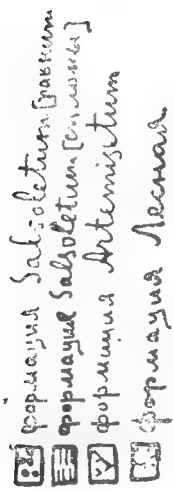 формация Salsoletum [равнин]
формация Salsoletum [склоны]
формация Artemisetum
формация Лесная.